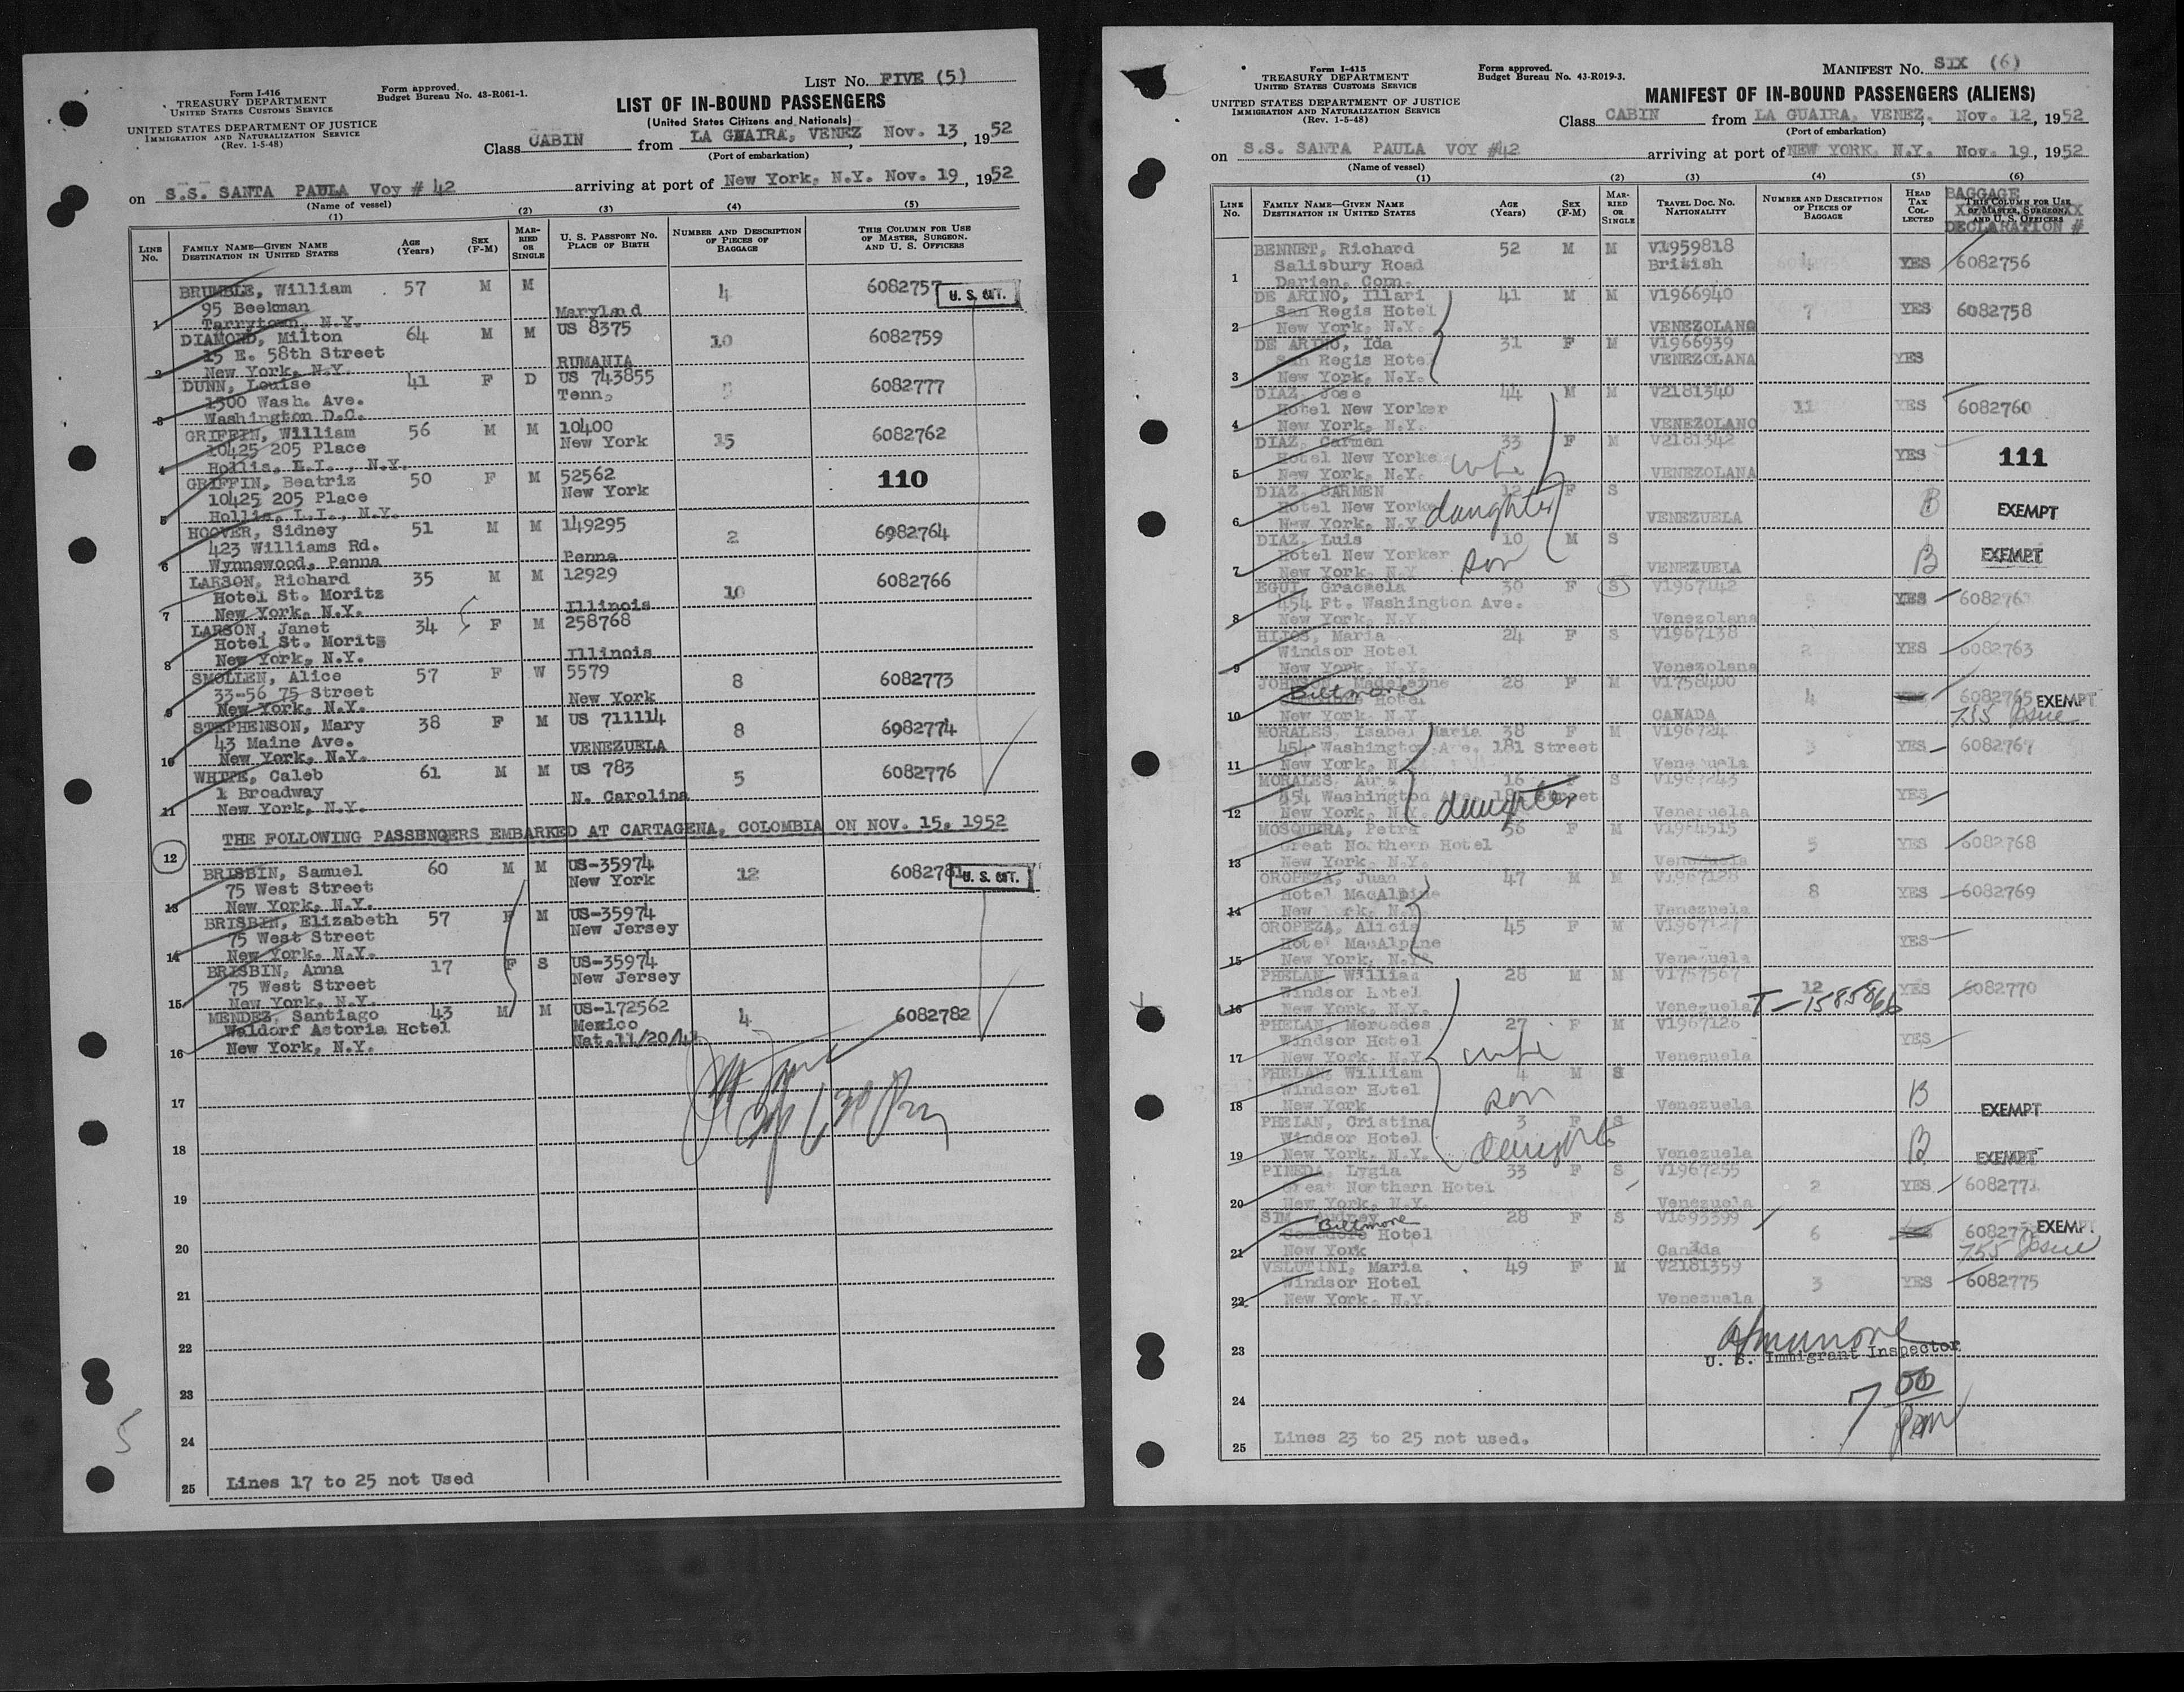 Form I-416
TREASURY DEPARTMENT
UNITED STATES CUSTOMS SERVICE
UNITED STATES DEPARTMENT OF JUSTICE
IMMIGRATION AND NATURALIZATION SERVICE
(Rev. 1-5-48)
Form approved.
Budget Bureau No. 43-R061-1.
LIST NO. FIVE (5)
LIST OF IN-BOUND PASSENGERS
(United States Citizens and Nationals)
Class CABIN from LA GUAIRA, VENEZ, Nov. 13, 1952
(Port of embarkation)
on S.S. SANTA PAULA Voy # 42 arriving at port of New York, N.Y. Nov. 19, 1952
(Name of vessel)
(1) (2) (3) (4) (5)
LINE No. FAMILY NAME—GIVEN NAME DESTINATION IN UNITED STATES AGE (Years) SEX (F-M) MARRIED OR SINGLE U. S. PASSPORT NO. PLACE OF BIRTH NUMBER AND DESCRIPTION OF PIECES OF BAGGAGE THIS COLUMN FOR USE OF MASTER, SURGEON, AND U. S. OFFICERS
BRUMBLE, William 57 M M 4 6082757 U. S. CIT.
95 Beekman Maryland
1 Tarrytown, N.Y.
DIAMOND, Milton 64 M M US 8375 10 6082759
15 E. 58th Street RUMANIA
2 New York, N.Y.
DUNN, Louise 41 F D US 743855 6082777
1500 Wash. Ave. Tenn,
3 Washington D.C.
GRIFFIN, William 56 M M 10400 15 6082762
10425 205 Place New York
4 Hollis, L.I., N.Y.
GRIFFIN, Beatriz 50 F M 52562 110
10425 205 Place New York
5 Hollis, L.I., N.Y.
HOOVER, Sidney 51 M M 149295 2 6982764
423 Williams Rd. Penna
6 Wynnewood, Penna
LARSON, Richard 35 M M 12929 10 6082766
Hotel St. Moritz Illinois
7 New York, N.Y.
LARSON, Janet 34 F M 258768
Hotel St. Moritz Illinois
8 New York, N.Y.
SMOLLEN, Alice 57 F W 5579 8 6082773
33-56 75 Street New York
9 New York, N.Y.
STEPHENSON, Mary 38 F M US 711114 8 6982774
43 Maine Ave. VENEZUELA
10 New York, N.Y.
WHITE, Caleb 61 M M US 783 5 6082776
1 Broadway N. Carolina
11 New York, N.Y.
12 THE FOLLOWING PASSENGERS EMBARKED AT CARTAGENA, COLOMBIA ON NOV. 15, 1952
BRISBIN, Samuel 60 M M US-35974 12 6082781 U. S. CIT.
75 West Street New York
13 New York, N.Y.
BRISBIN, Elizabeth 57 F M US-35974
75 West Street New Jersey
14 New York, N.Y.
BRISBIN, Anna 17 F S US-35974
75 West Street New Jersey
15 New York, N.Y.
MENDEZ, Santiago 43 M M US-172562 4 6082782
Waldorf Astoria Hotel Mexico
16 New York, N.Y. Nat.11/20/41
17
18
19
20
21
22
23
24
25 Lines 17 to 25 not Used
5
Form I-415
TREASURY DEPARTMENT
UNITED STATES CUSTOMS SERVICE
UNITED STATES DEPARTMENT OF JUSTICE
IMMIGRATION AND NATURALIZATION SERVICE
(Rev. 1-5-48)
Form approved.
Budget Bureau No. 43-R019-3.
MANIFEST NO. SIX (6)
MANIFEST OF IN-BOUND PASSENGERS (ALIENS)
Class CABIN from LA GUAIRA, VENEZ, Nov. 12, 1952
(Port of embarkation)
on S.S. SANTA PAULA VOY #42 arriving at port of NEW YORK, N.Y. Nov. 19, 1952
(Name of vessel)
(1) (2) (3) (4) (5) (6)
LINE No. FAMILY NAME—GIVEN NAME DESTINATION IN UNITED STATES AGE (Years) SEX (F-M) MARRIED OR SINGLE TRAVEL DOC. NO. NATIONALITY NUMBER AND DESCRIPTION OF PIECES OF BAGGAGE HEAD TAX COLLECTED THIS COLUMN FOR USE OF MASTER, SURGEON, AND U. S. OFFICERS
BAGGAGE DECLARATION #
BENNET, Richard 52 M M V1959818 YES 6082756
Salisbury Road British
1 Darien, Conn.
DE ARINO, Illari 41 M M V1966940 7 YES 6082758
San Regis Hotel
2 New York, N.Y. VENEZOLANO
DE ARINO, Ida 31 F M V1966939 YES
San Regis Hotel VENEZOLANA
3 New York, N.Y.
DIAZ, Jose 44 M M V2181340 11 YES 6082760
Hotel New Yorker
4 New York, N.Y. VENEZOLANO
DIAZ, Carmen 33 F M V2181342 YES 111
Hotel New Yorke wife
5 New York, N.Y. VENEZOLANA
DIAZ, CARMEN 12 F S B EXEMPT
Hotel New Yorke daughter
6 New York, N.Y. VENEZUELA
DIAZ, Luis 10 M S B EXEMPT
Hotel New Yorker son
7 New York, N.Y VENEZUELA
EGUI, Graciela 30 F S V1967142 YES 608276
454 Ft. Washington Ave.
8 New York, N.Y. Venezolana
HIJOS, Maria 24 F S V1967138 2 YES 6082763
Windsor Hotel
9 New York, N.Y. Venezolana
JOHNSON, Madeleine 28 F M V1758400 4 6082765 EXEMPT
Biltmore Hotel
10 New York, N.Y. CANADA
MORALES, Isabel Maria 38 F M V196724 3 YES 6082767
454 Washington Ave. 181 Street
11 New York, N.Y. Venezuela
MORALES, Aura 16 F S V1967243 YES
454 Washington Ave. 181 Street daughter
12 New York, N.Y. Venezuela
MOSQUERA, Petra 56 F M V1964515 5 YES 6082768
Great Northern Hotel
13 New York, N.Y. Venezuela
OROPEZA, Juan 47 M M V1967128 8 YES 6082769
Hotel MacAlpine
14 New York, N.Y. Venezuela
OROPEZA, Alicia 45 F M V1967127 YES
Hotel MacAlpine
15 New York, N.Y. Venezuela
PHELAN, William 28 M M V1757567 12 YES 6082770
Windsor Hotel
16 New York, N.Y. Venezuela T-1585866
PHELAN, Mercedes 27 F M V1967126 YES
Windsor Hotel wife
17 New York, N.Y. Venezuela
PHELAN, William 4 M S B EXEMPT
Windsor Hotel son
18 New York Venezuela
PHELAN, Cristina 3 F S B EXEMPT
Windsor Hotel daughter
19 New York, N.Y. Venezuela
PINEDA, Lygia 33 F S V1967255 2 YES 6082771
Great Northern Hotel
20 New York, N.Y. Venezuela
SIM, Audrey 28 F S V1693399 6 608277 EXEMPT
Biltmore Comodore Hotel
21 New York Canada
VELUTINI, Maria 49 F M V2181359 3 YES 6082775
Windsor Hotel
22 New York, N.Y. Venezuela
23 U. S. Immigrant Inspector
24 7 00 PM
25 Lines 23 to 25 not used.